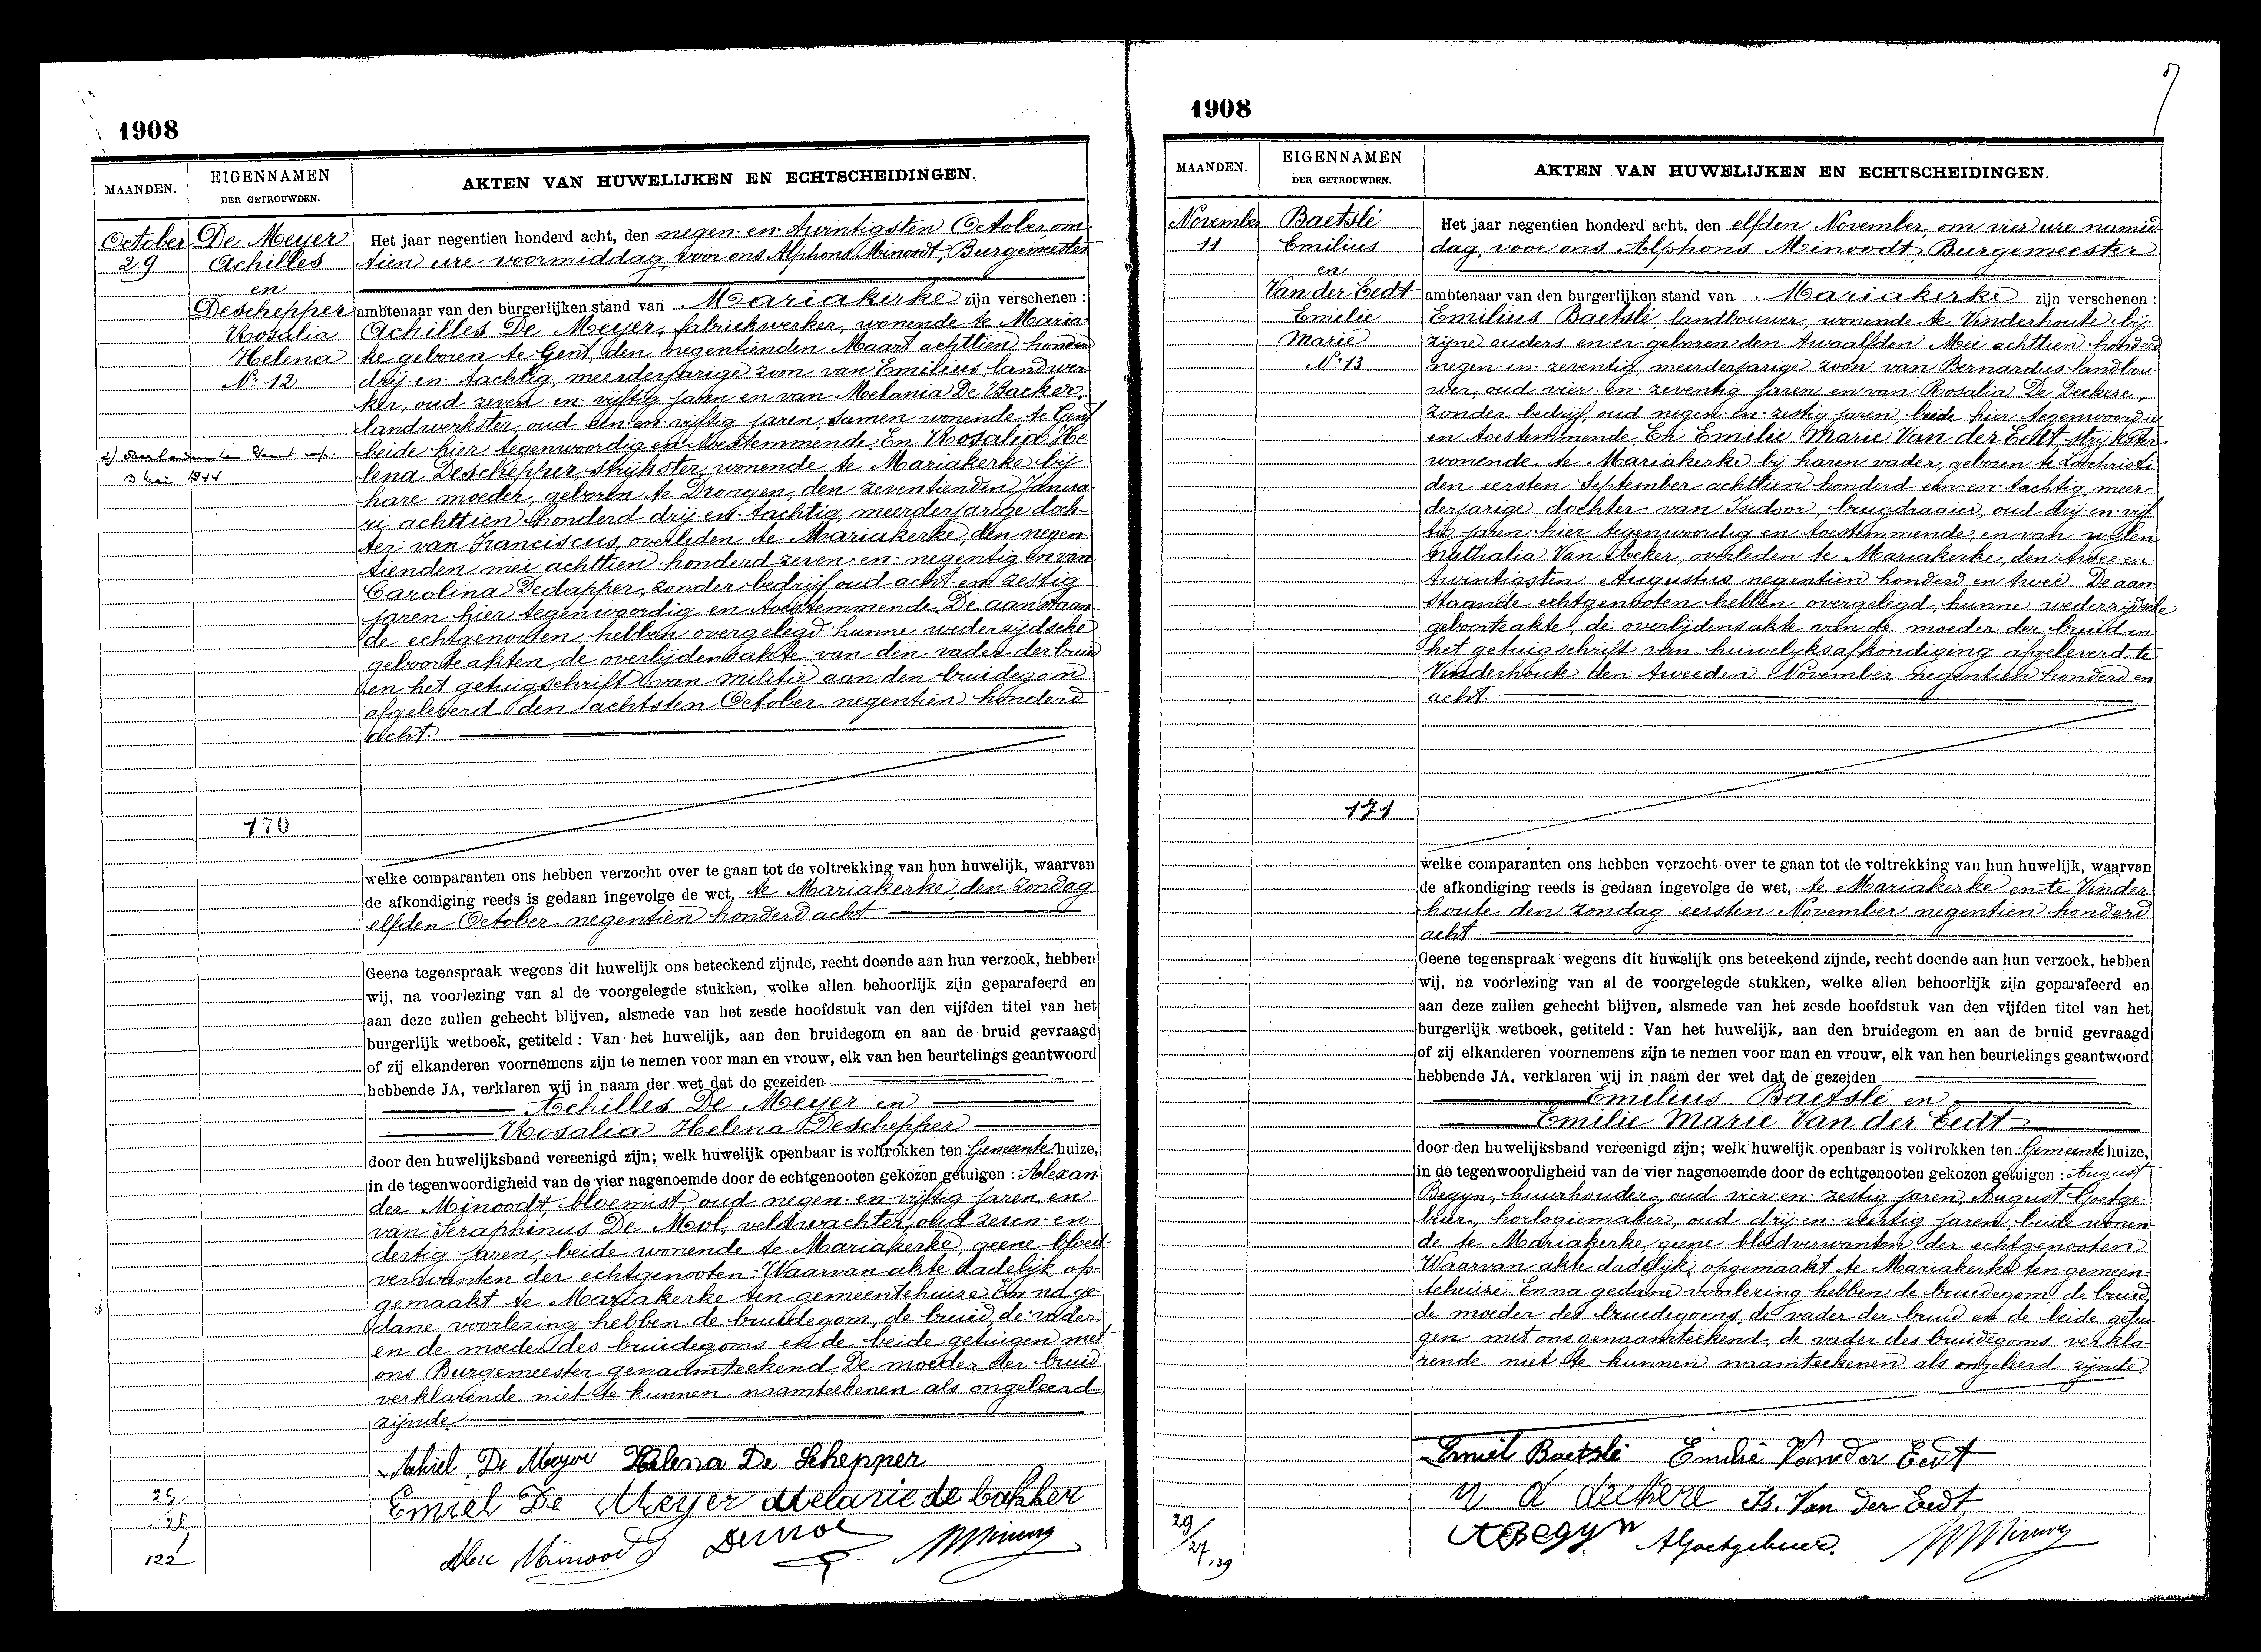 1908
MAANDEN.
EIGENNAMEN
DER GETROUWDEN.
AKTEN VAN HUWELIJKEN EN ECHTSCHEIDINGEN.
October
29
De Meyer
Achilles
en
Deschepper
Rosalia
Helena
No 12
overleden te Gent op
3 Mei 1944
170
Het jaar negentien honderd acht, den negen-en-twintigsten October om
tien ure voormiddag, voor ons Alphons Minoodt, Burgemeester
ambtenaar van den burgerlijken stand van Mariakerke zijn verschenen :
Achilles De Meyer, fabriekwerker, wonende te Maria
ke geboren te Gent, den negentienden Maart achttien honderd
drij-en-tachtig, meerderjarige zoon van Emilius landwer
ker, oud zeven-en-vijftig jaren en van Melania De Backer,
landwerkster, oud een-en-vijftig jaren, samen wonende te Gent
beide hier tegenwoordig en toestemmende. En Rosalia He
lena Deschepper, strijkster, wonende te Mariakerke bij
hare moeder, geboren te Drongen, den zeventienden Janua
rij achttien honderd drij-en-tachtig, meerderjarige doch
ter van Franciscus, overleden te Mariakerke, den negen
tienden mei achttien honderd zeven-en-negentig en van
Carolina Dedapper, zonder bedrijf oud acht-en-zestig
jaren hier tegenwoordig en toestemmende. De aanstaan
de echtgenooten hebben overgelegd hunne wederzijdsche
geboorteakten, de overlijdensakte van den vader der bruid
en het getuigschrift van militie aan den bruidegom
afgeleverd den achtsten October negentien honderd
acht.
welke comparanten ons hebben verzocht over te gaan tot de voltrekking van hun huwelijk, waarvan
de afkondiging reeds is gedaan ingevolge de wet, te Mariakerke, den Zondag
elfden October negentien honderd acht
Geene tegenspraak wegens dit huwelijk ons beteekend zijnde, recht doende aan hun verzoek, hebben
wij, na voorlezing van al de voorgelegde stukken, welke allen behoorlijk zijn geparafeerd en
aan deze zullen gehecht blijven, alsmede van het zesde hoofdstuk van den vijfden titel van het
burgerlijk wetboek, getiteld : Van het huwelijk, aan den bruidegom en aan de bruid gevraagd
of zij elkanderen voornemens zijn te nemen voor man en vrouw, elk van hen beurtelings geantwoord
hebbende JA, verklaren wij in naam der wet dat de gezeiden
Achilles De Meyer en
Rosalia Helena Deschepper
door den huwelijksband vereenigd zijn; welk huwelijk openbaar is voltrokken ten Gemeente huize,
in de tegenwoordigheid van de vier nagenoemde door de echtgenooten gekozen getuigen : Alexan
der Minoodt, bloemist, oud negen-en-vijftig jaren en
van Seraphinus De Mol, veldwachter, oud zeven-en-
dertig jaren, beide wonende te Mariakerke, geene bloed-
verwanten der echtgenooten. Waarvan akte dadelijk op-
gemaakt te Mariakerke ten gemeentehuize. En na ge-
dane voorlezing hebben de bruidegom, de bruid, de vader
en de moeder des bruidegoms en de beide getuigen met
ons Burgemeester genaamteekend. De moeder der bruid
verklarende niet te kunnen naamteekenen als ongeleerd
zijnde
Achiel De Meyer Helena De Schepper
Emiel De Meyer Melanie de bakker
Alex Minoodt Demol
25
122
1908
MAANDEN.
EIGENNAMEN
DER GETROUWDEN.
AKTEN VAN HUWELIJKEN EN ECHTSCHEIDINGEN.
November
11
Baetslé
Emilius
en
Van der Eedt
Emelie
Marie
No 13
171
Het jaar negentien honderd acht, den elfden November, om vier ure namid
dag, voor ons Alphons Minoodt, Burgemeester
ambtenaar van den burgerlijken stand van Mariakerke zijn verschenen :
Emilius Baetslé, landbouwer, wonende te Vinderhoute bij
zijne ouders en er geboren den twaalfden Mei achttien honderd
negen-en-zeventig, meerderjarige zoon van Bernardus landbou-
wer, oud vier-en-zeventig jaren en van Rosalia De Deckere,
zonder bedrijf, oud negen-en-zestig jaren, beide hier tegenwoordig
en toestemmende. En Emilie Marie Van der Eedt, strijkster
wonende te Mariakerke bij haren vader, geboren te Loochristi
den eersten September achttien honderd een-en-tachtig, meer-
derjarige dochter van Isidoor, brugdraaier, oud drij-en-vijf
tig jaren hier tegenwoordig en toestemmende, en van wijlen
Nathalia Van Acker, overleden te Mariakerke, den twee-en-
twintigsten Augustus negentien honderd en twee. De aan
staande echtgenooten hebben overgelegd, hunne wederzijdsche
geboorteakte, de overlijdensakte van de moeder der bruid en
het getuigschrift van huwelijksafkondiging afgeleverd te
Vinderhoute den tweeden November negentien honderd en
acht.
welke comparanten ons hebben verzocht over te gaan tot de voltrekking van hun huwelijk, waarvan
de afkondiging reeds is gedaan ingevolge de wet, te Mariakerke en te Vinder-
houte den zondag eersten November negentien honderd
acht
Geene tegenspraak wegens dit huwelijk ons beteekend zijnde, recht doende aan hun verzoek, hebben
wij, na voorlezing van al de voorgelegde stukken, welke allen behoorlijk zijn geparafeerd en
aan deze zullen gehecht blijven, alsmede van het zesde hoofdstuk van den vijfden titel van het
burgerlijk wetboek, getiteld : Van het huwelijk, aan den bruidegom en aan de bruid gevraagd
of zij elkanderen voornemens zijn te nemen voor man en vrouw, elk van hen beurtelings geantwoord
hebbende JA, verklaren wij in naam der wet dat de gezeiden
Emilius Baetslé en
Emilie Marie Van der Eedt
door den huwelijksband vereenigd zijn; welk huwelijk openbaar is voltrokken ten Gemeente huize,
in de tegenwoordigheid van de vier nagenoemde door de echtgenooten gekozen getuigen : August
Begyn, huurhouder, oud vier-en-zestig jaren, August Goetge-
buer, horlogiemaker, oud drij-en-veertig jaren, beide wonen
de te Mariakerke, geene bloedverwanten der echtgenooten
Waarvan akte dadelijk opgemaakt te Mariakerke ten gemeen-
tehuize. En na gedane voorlezing hebben de bruidegom, de bruid,
de moeder des bruidegoms, de vader der bruid en de beide getui
gen met ons genaamteekend, de vader des bruidegoms verkla-
rende niet te kunnen naamteekenen als ongeleerd zijnde.
Emiel Baetslé Emilie Vander Eedt
d deckere Is. Van Der Eedt
A Begyn AGoetgebuer.
29
27
139